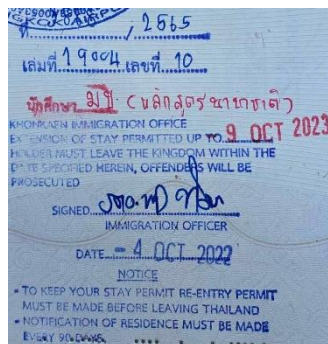 ที่ / 2565
เล่มที่ 19004 เลขที่ 10
นักศึกษา มข (หลักสูตรนานาชาติ)
KHONKAEN IMMIGRATION OFFICE
EXTENSION OF STAY PERMITTED UP TO 9 OCT 2023
HOLDER MUST LEAVE THE KINGDOM WITHIN THE
DATE SPECIFIED HEREIN, OFFENDERS WILL BE
PROSECUTED
SIGNED
IMMIGRATION OFFICER
DATE - 4 OCT 2022
NOTICE
• TO KEEP YOUR STAY PERMIT RE-ENTRY PERMIT
MUST BE MADE BEFORE LEAVING THAILAND
• NOTIFICATION OF RESIDENCE MUST BE MADE
EVERY 90 DAYS.